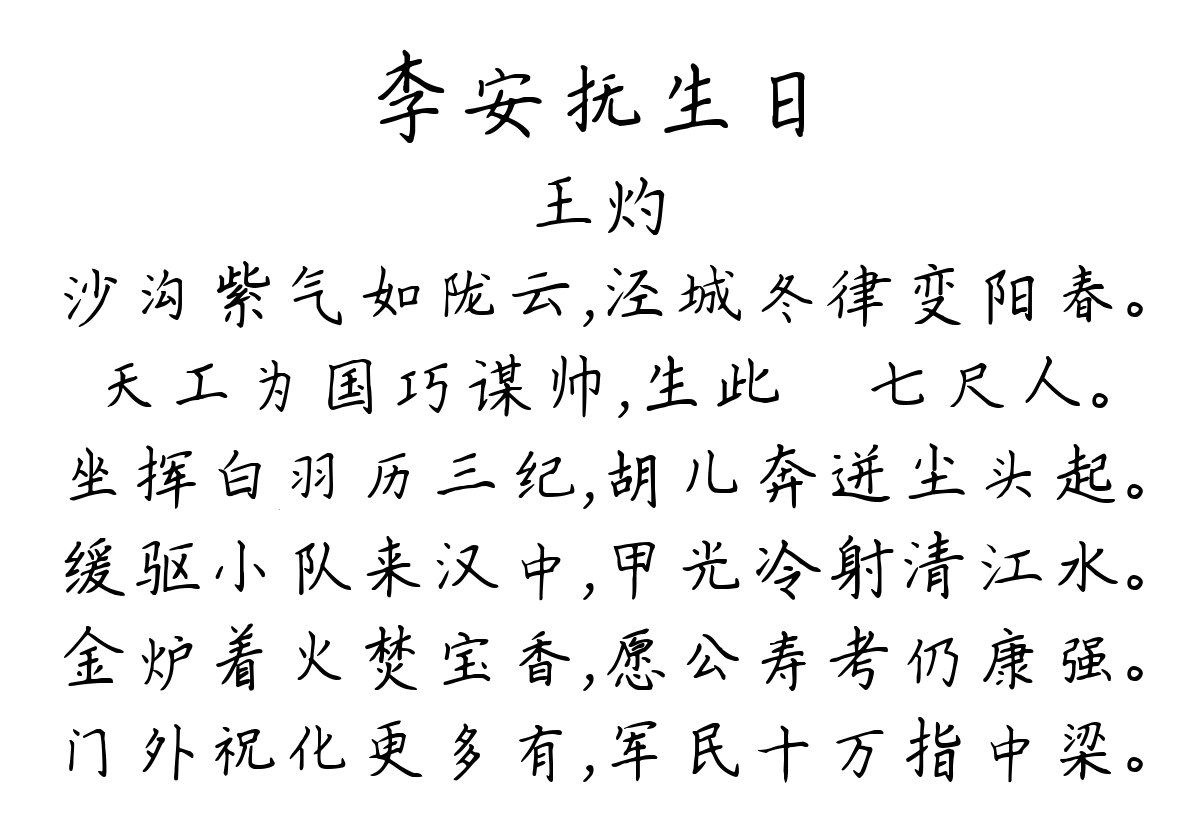 李安抚生日
王灼
沙沟紫气如陇云,泾城冬律变阳春。
天工为国巧谋帅,生此 七尺人。
坐挥白羽历三纪,胡儿奔迸尘头起。
缓驱小队来汉中,甲光冷射清江水。
金炉着火焚宝香,愿公寿考仍康强。
门外祝化更多有,军民十万指中梁。